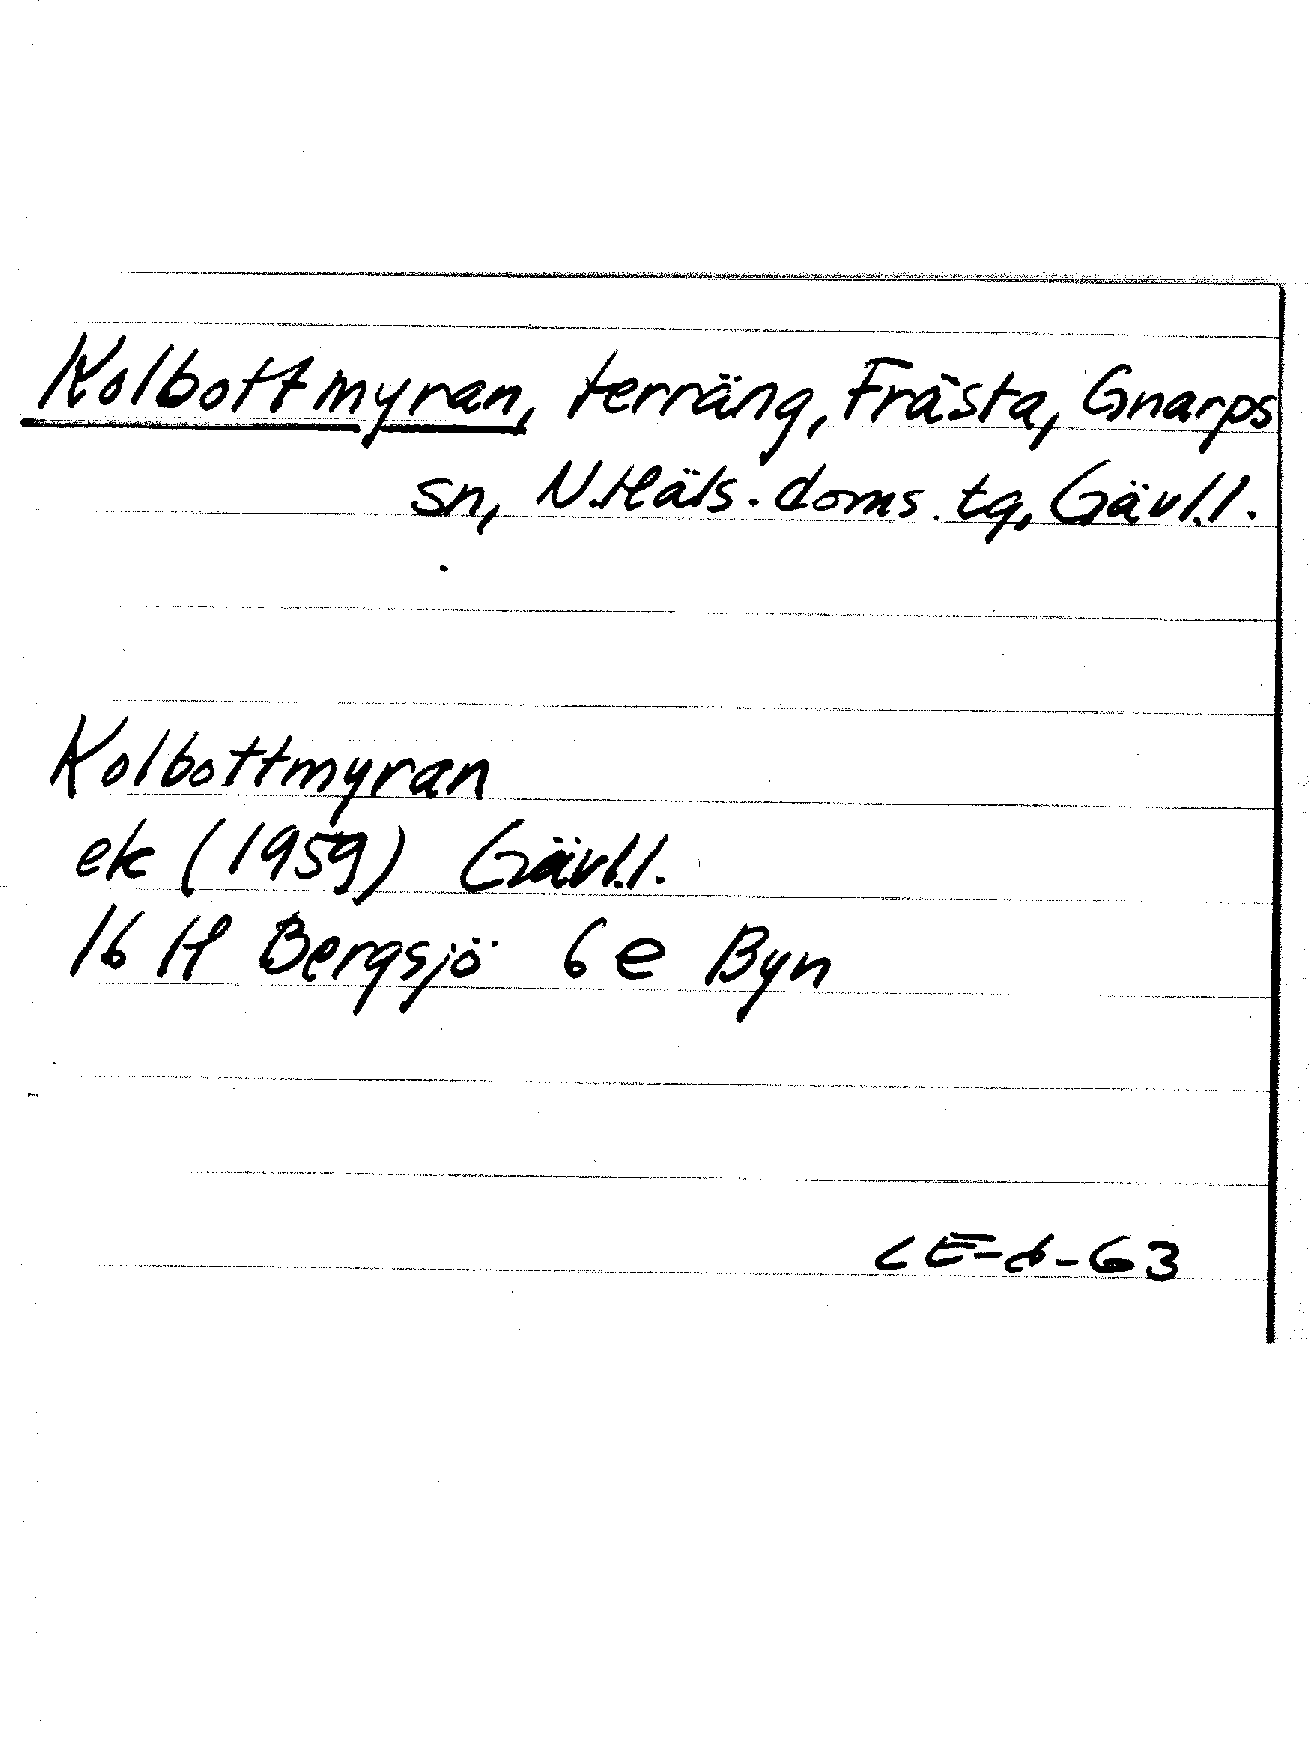 Kolbottmyran, terräng, Frästa, Gnarps
sn, N.Häls. doms. tg, Gävl.l.
Kolbottmyran
ek (1959) Gävl.l.
16 H Bergsjö 6 e Byn